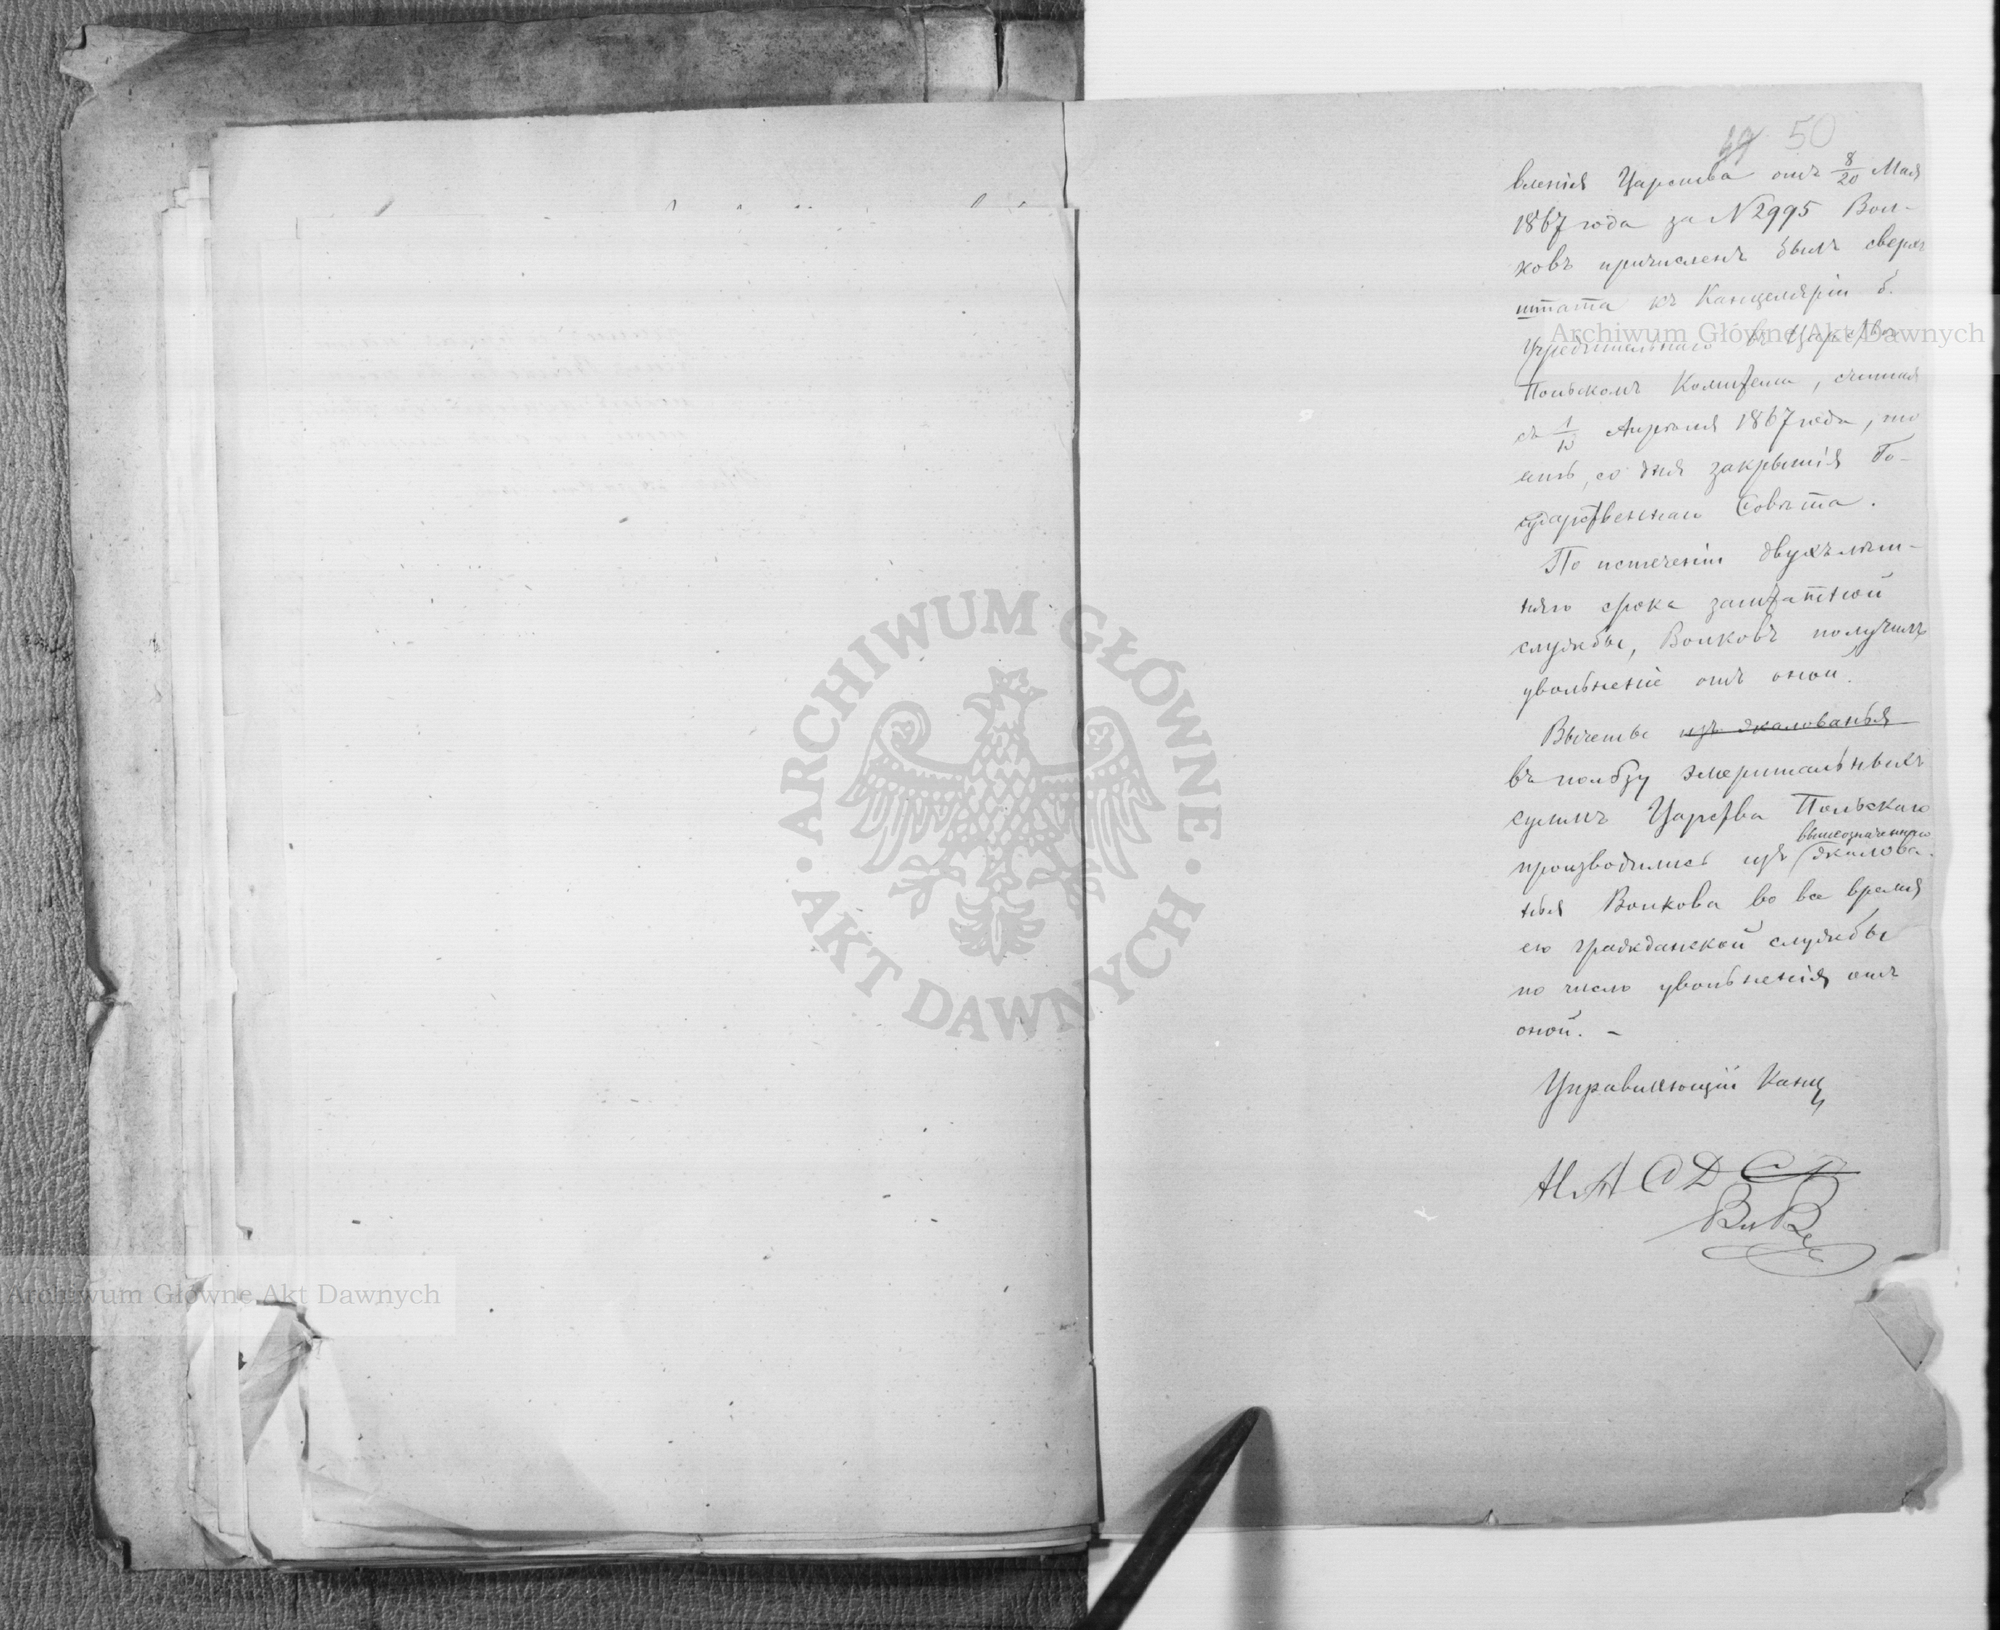 50
вленія Царства отъ 8/20 Мая
1867 года за N 2995 Вол-
ковъ причисленъ былъ сверхъ
штата къ Канцеляріи б.
Учредительнаго въ Царствѣ
Польскомъ Комитета, считая
съ 1/13 Апрѣля 1867 года, то
есть, со дня закрытія Го-
сударственнаго Совѣта.
По истеченіи двухълѣт-
няго срока заштатной
службы, Волковъ получилъ
увольненіе отъ оной.
Вычеты изъ жалованья
въ пользу эмеритальныхъ
суммъ Царства Польскаго
вышеозначеннаго
производились изъ жалова-
нья Волкова во все время
его гражданской службы
по число увольненія отъ
оной. –
Управляющій Канц
Archiwum Główne Akt Dawnych
ARCHIWUM GŁÓWNE · AKT DAWNYCH ·
Archiwum Główne Akt Dawnych